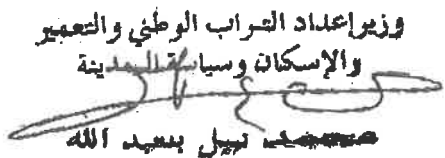 وزير إعداد التراب الوطني والتعمير
والإسكان وسياسة المدينة
محمد نبيل بنعبد الله